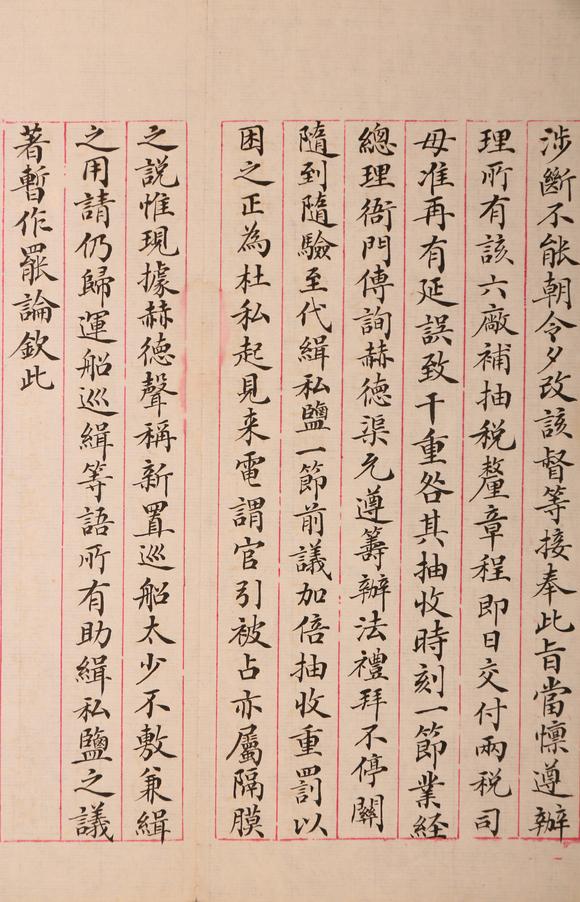 涉斷不能朝令夕改該督等接奉此旨當懍遵辦
理所有該六廠補抽稅釐章程即日交付兩稅司
毋准再有延誤致干重咎其抽收時刻一節業経
總理衙門傳詢赫德渠允遵籌辦法禮拜不停關
隨到隨驗至代緝私鹽一節前議加倍抽收重罰以
困之正為杜私起見来電謂官引被占亦屬隔膜
之說惟現據赫德聲稱新置巡船太少不敷兼緝
之用請仍歸運船巡緝等語所有助緝私鹽之議
著暫作罷論欽此